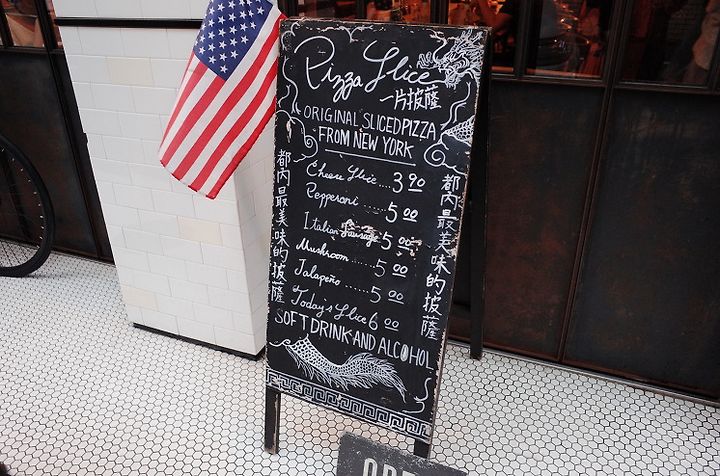 Pizza Slice
一片披薩
ORIGINAL SLICED PIZZA
- FROM NEW YORK
Cheese Slice.... 3 90
Pepperoni ...... 5 00
Italian Sausage 5 00
Mushroom ..... 5 00
Jalapeño ....... 5 00
Today's Slice 6 00
SOFT DRINK AND ALCOHOL
都內最美味的披薩
都內最美味的披薩
OPE